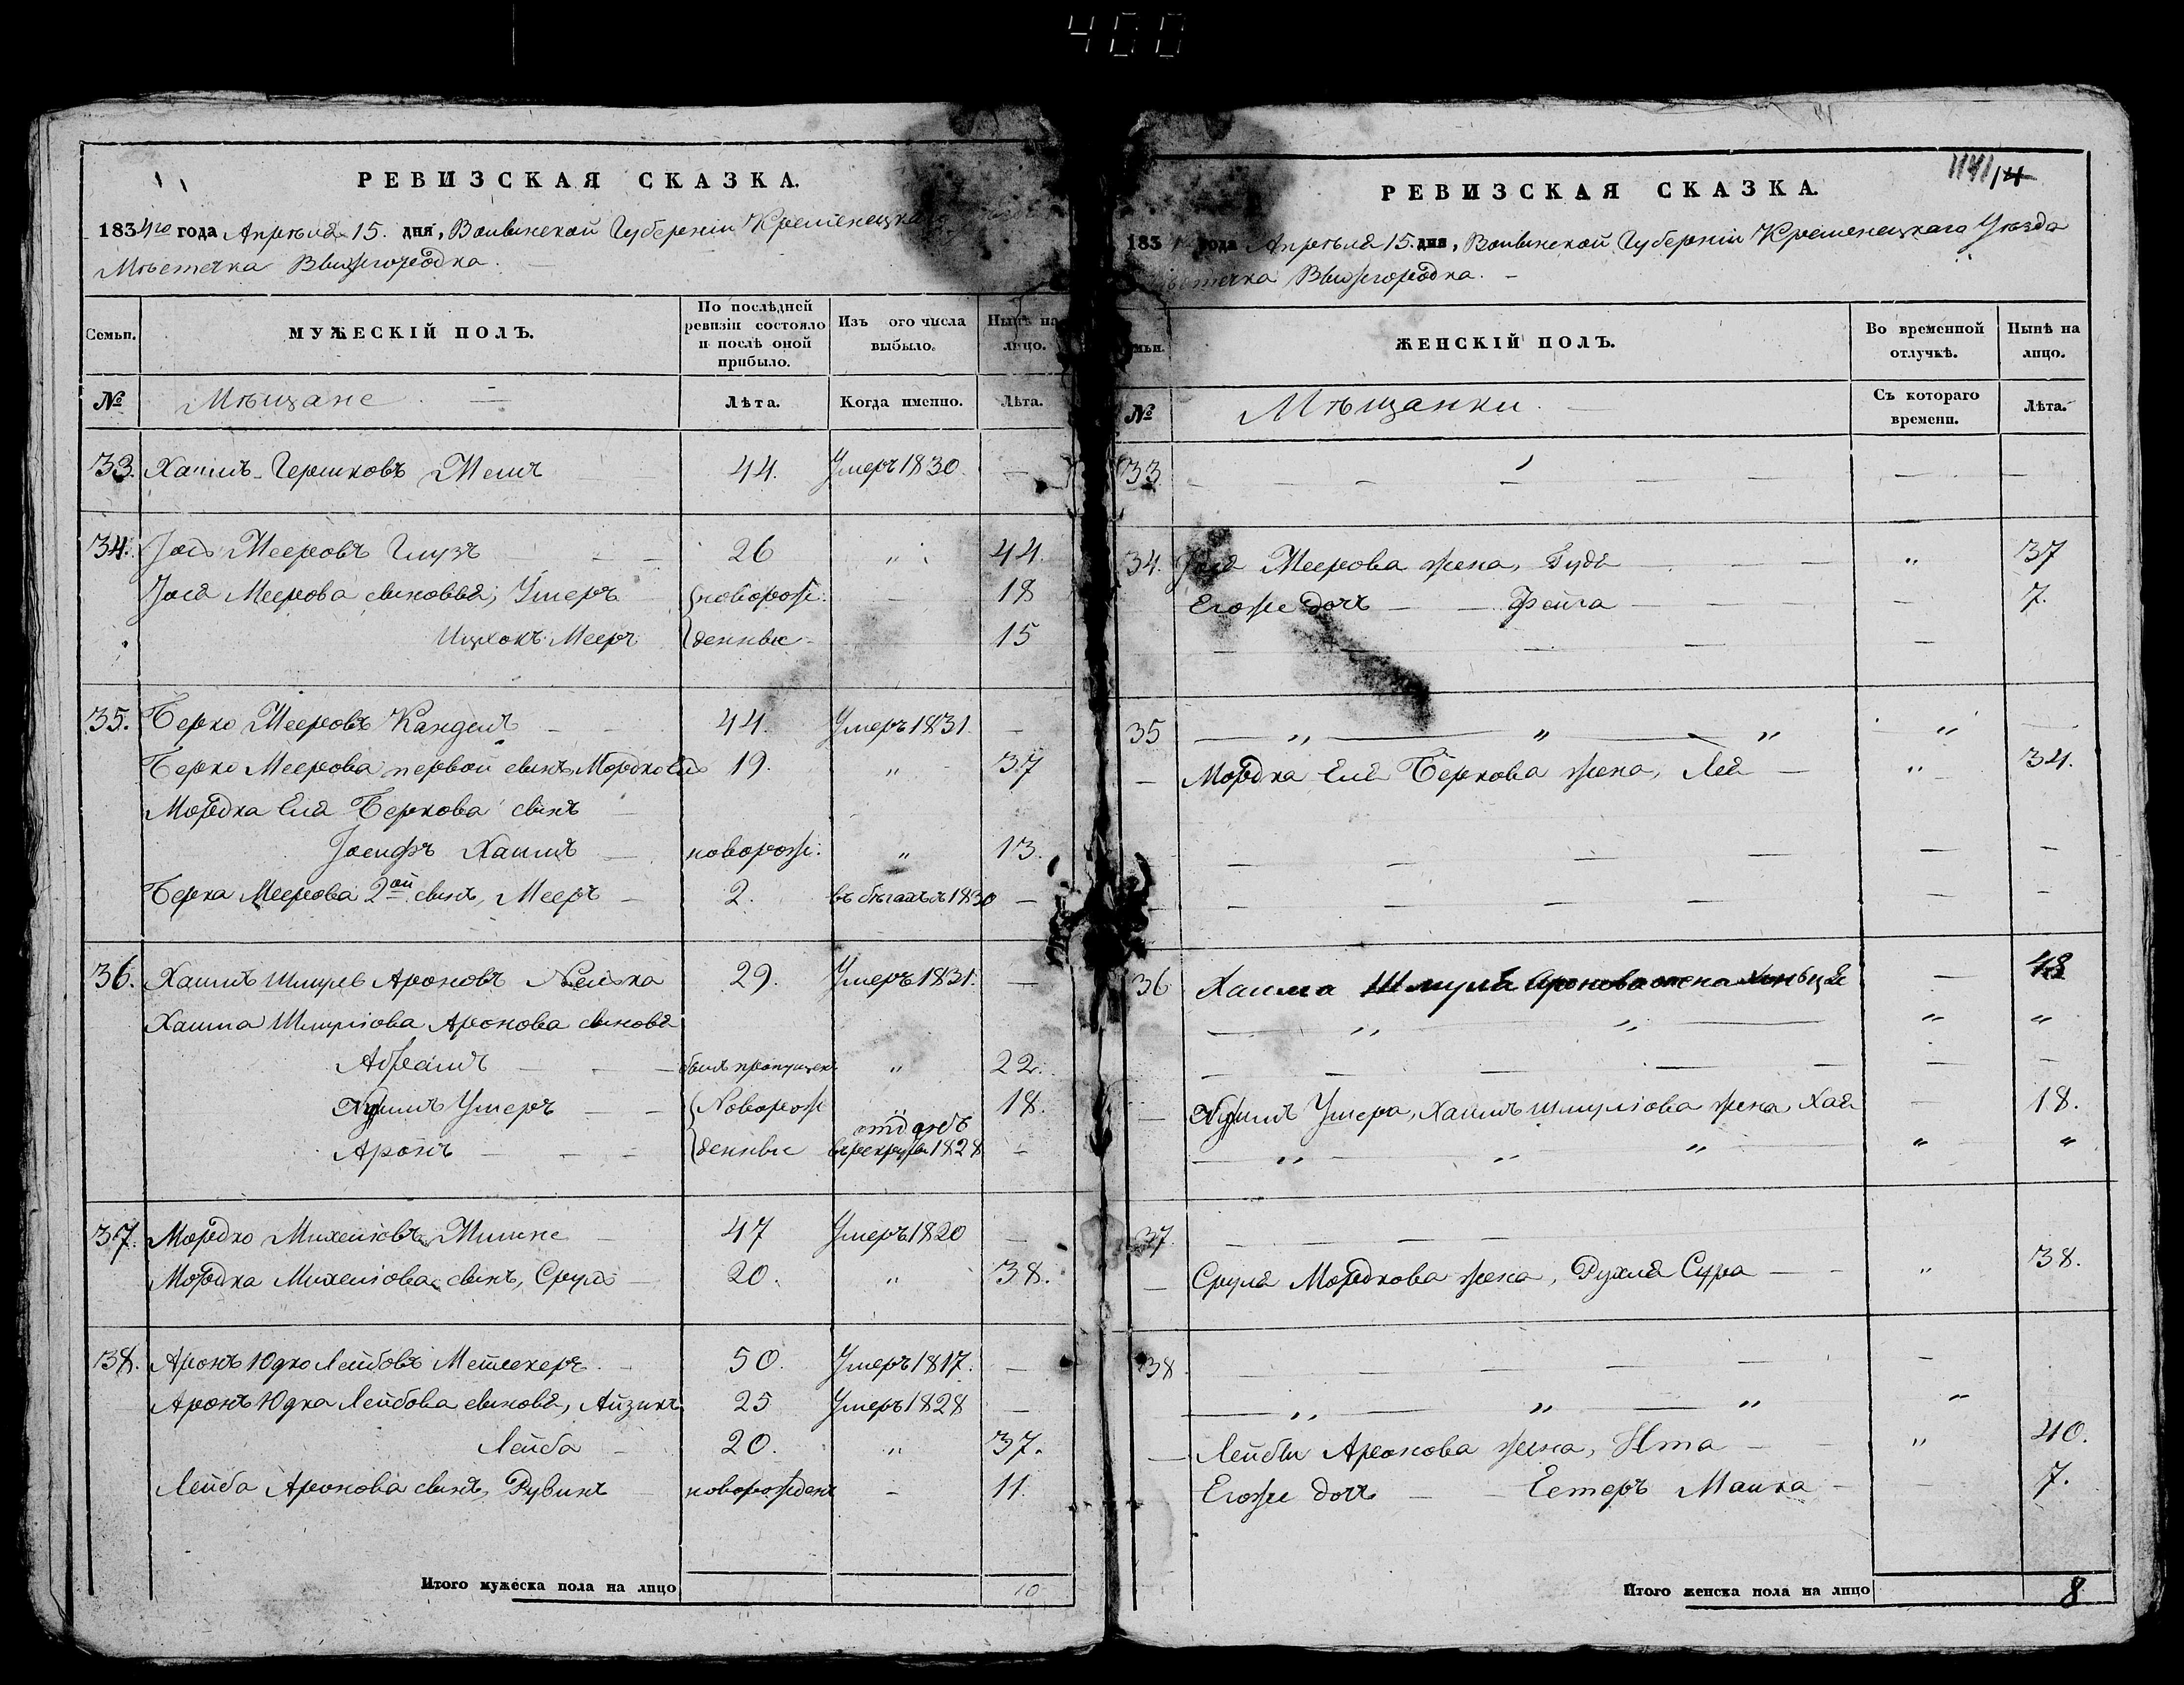 400
РЕВИЗСКАЯ СКАЗКА.
1834го года Апрѣля 15. дня, Волынской Губерніи Кременецкаго
Мѣстечка Вышгородка.
Семьи.
МУЖЕСКІЙ ПОЛЪ.
По послѣдней ревизіи состояло и послѣ оной прибыло.
Изъ ого числа выбыло.
Нынѣ на лицо.
№ Мѣщане
Лѣта. Когда именно. Лѣта.
33. Хаимъ Гершковъ 44. Умеръ 1830 —
34. Іось Мееровъ 26 „ 44.
Іося Меерова сыновья, Ушеръ новорож 18
Ицхокъ Мееръ денные 15
35. Берко Мееровъ Кандель 44. Умеръ 1831. —
Берко Меерова первой сынъ, Мордко Ель 19. „ 37
Мордка Еля Беркова сынъ
Іосифъ Хаимъ новорож. „ 13.
Берка Меерова 2ой сынъ, Мееръ 2. въ бѣгахъ съ 1830 —
36. Хаимъ Шмуль Ароновъ 29. Умеръ 1831. —
Хаима Шмулiова Аронова сыновья
Абрамъ былъ пропущенъ „ 22.
Ушеръ Новорож „ 18.
отданъ
Аронъ денные въ рекруты 1828 —
37. Мордко Михелiовъ 47 Умеръ 1820 —
Мордка Михелiова сынъ, Сруль 20. „ 38.
38. Аронъ Юдко Лейбовъ 50. Умеръ 1817. —
Аронъ Юдка Лейбова сыновья, Айзикъ 25 Умеръ 1828 —
Лейба 20. „ 37.
Лейба Аронова сынъ, Рувинъ новорожденъ — 11.
Итого мужеска пола на лицо 10
14
РЕВИЗСКАЯ СКАЗКА.
183 года Апрѣля 15. дня, Волынской Губерніи Кременецкаго Уѣзда
Мѣстечка Вышгородка. —
ЖЕНСКІЙ ПОЛЪ.
Во временной отлучкѣ.
Нынѣ на лицо.
№ Мѣщанки.
Съ котораго времени.
Лѣта.
33
34. Іося Меерова жена, „ 37
Егоже дочь — Фейга — 7.
35 „ „ „ „
Мордка Еля Беркова жена, Лея „ 34.
36 Хаима Шмуля Аронова жена — 48
„ „ „ „
Ушера, Хаимъ Шмулiова жена, Хая — 18.
„ „ „ „ „
37.
Сруля Мордкова жена, Рухля Сура „ 38.
38
„ „ „ „
Лейбы Аронова жена, Ита „ 40.
Егоже дочь — Естеръ Малка 7.
Итого женска пола на лицо 8